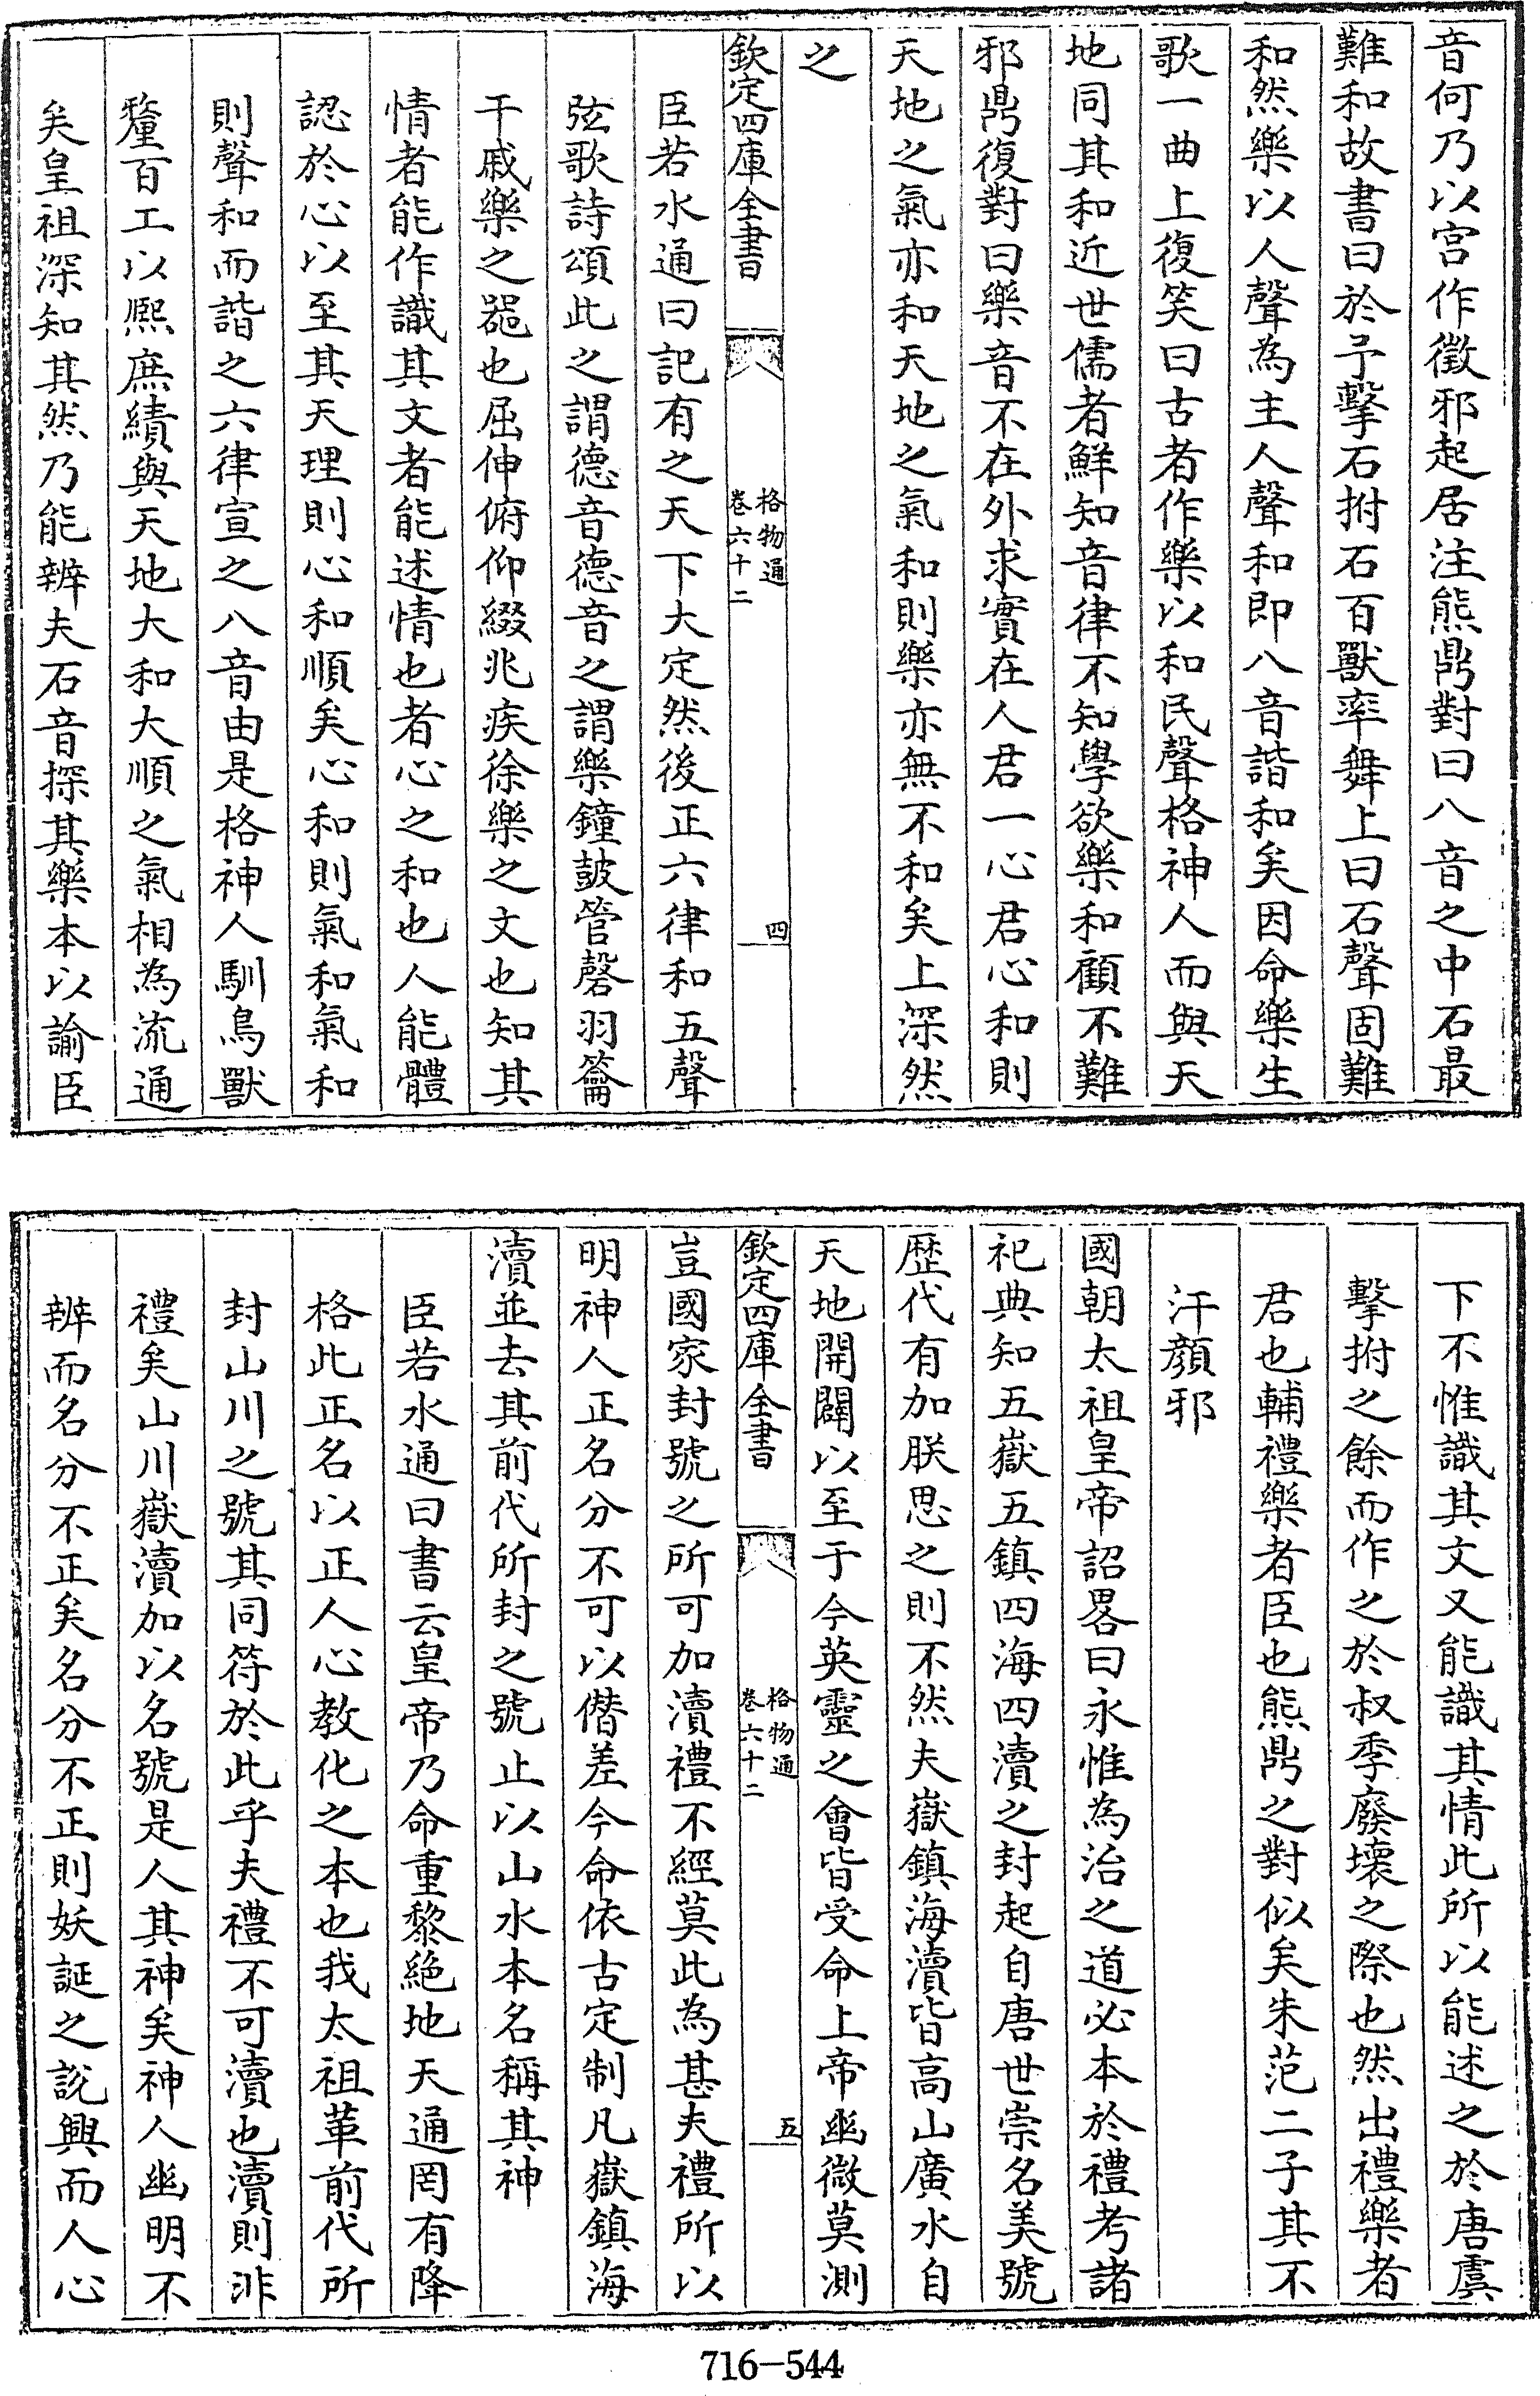 音何乃以宫作徵邪起居注熊鼎對曰八音之中石最
難和故書曰於予擊石拊石百獸率舞上曰石聲固難
和然樂以人聲為主人聲和即八音諧和矣因命樂生
歌一曲上復笑曰古者作樂以和民聲格神人而與天
地同其和近世儒者鮮知音律不知學欲樂和顧不難
邪鼎復對曰樂音不在外求實在人君一心君心和則
天地之氣亦和天地之氣和則樂亦無不和矣上深然
之
欽定四庫全書
格物通
卷六十二
四
臣若水通曰記有之天下大定然後正六律和五聲
弦歌詩頌此之謂德音德音之謂樂鐘鼓管磬羽籥
干戚樂之器也屈伸俯仰綴兆疾徐樂之文也知其
情者能作識其文者能述情也者心之和也人能體
認於心以至其天理則心和順矣心和則氣和氣和
則聲和而諧之六律宣之八音由是格神人馴鳥獸
釐百工以熈庶績與天地大和大順之氣相為流通
矣皇祖深知其然乃能辨夫石音探其樂本以諭臣
下不惟識其文又能識其情此所以能述之於唐虞
擊拊之餘而作之於叔季廢壊之際也然出禮樂者
君也輔禮樂者臣也熊鼎之對似矣朱范二子其不
汗顔邪
國朝太祖皇帝詔畧曰永惟為治之道必本於禮考諸
祀典知五嶽五鎮四海四瀆之封起自唐世崇名美號
歴代有加朕思之則不然夫嶽鎮海瀆皆高山廣水自
天地開闢以至于今英靈之會皆受命上帝幽微莫測
欽定四庫全書
格物通
卷六十二
五
豈國家封號之所可加瀆禮不經莫此為甚夫禮所以
明神人正名分不可以僭差今命依古定制凡嶽鎮海
瀆並去其前代所封之號止以山水本名稱其神
臣若水通曰書云皇帝乃命重黎絶地天通罔有降
格此正名以正人心教化之本也我太祖革前代所
封山川之號其同符於此乎夫禮不可瀆也瀆則非
禮矣山川嶽瀆加以名號是人其神矣神人幽明不
辨而名分不正矣名分不正則妖誕之說興而人心
716-544